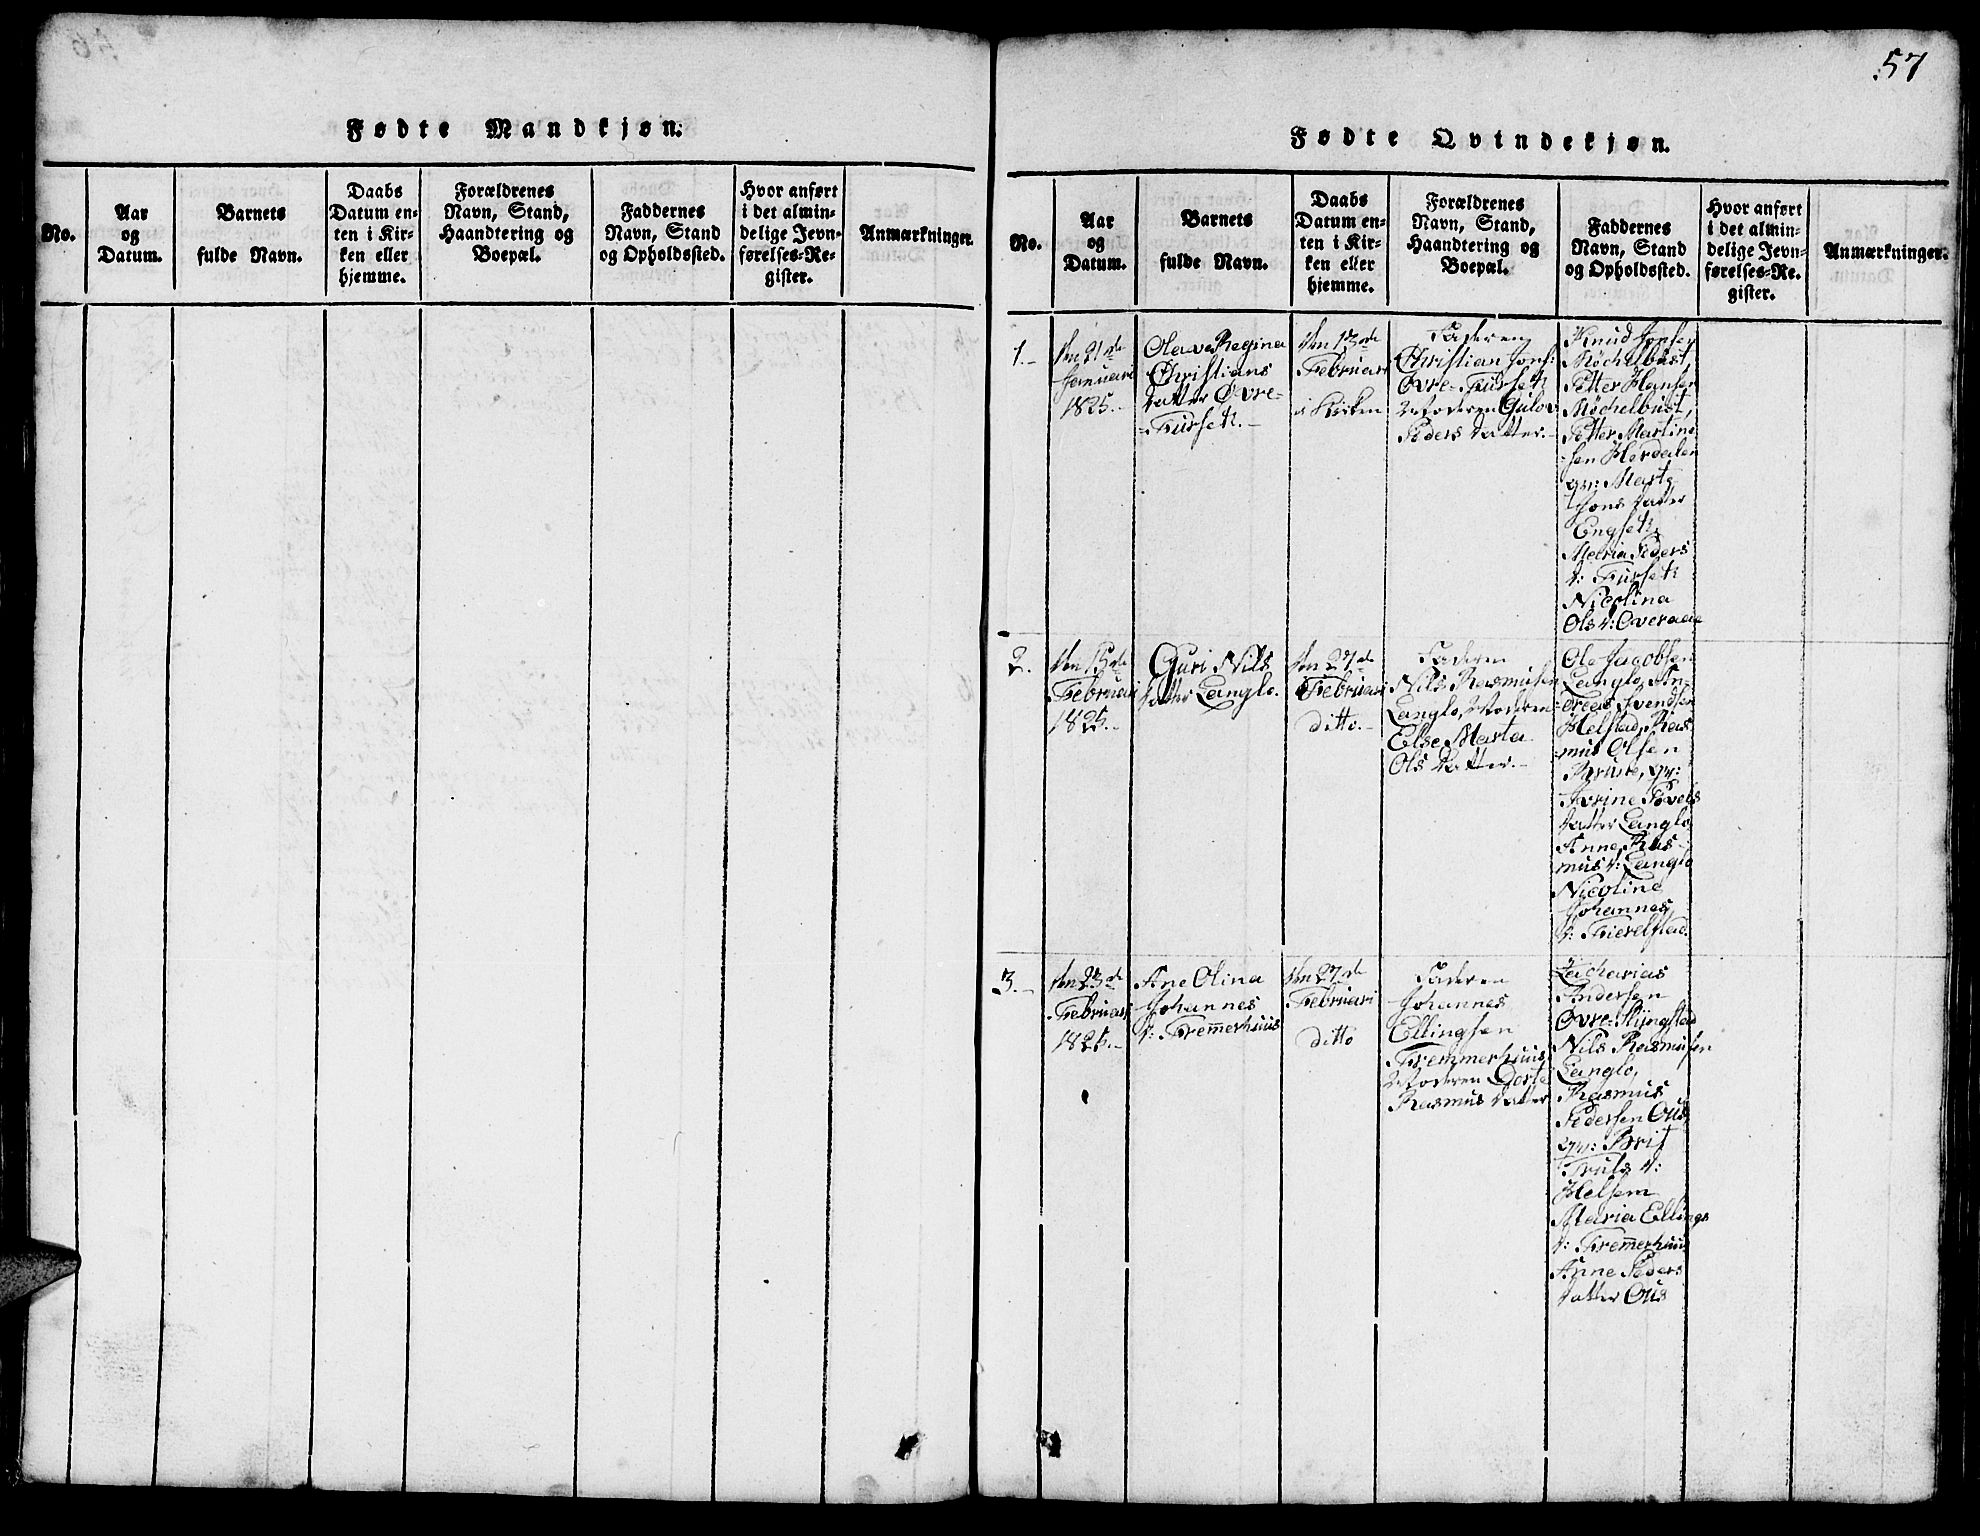 57
Fødte Mandkjøn.
No.
Aar
og
Datum.
Barnets
fulde Navn.
Daabs
Datum en-
ten i Kir-
ken eller
hjemme.
Forældrenes
Navn, Stand,
Haandtering og
Boepæl.
Faddernes
Navn, Stand
og Opholdssted.
Hvor anført
i det almin-
delige Jevn-
førelses-Re-
gister.
Anmærkninger.
Fødte Qvindekjøn.
No.
Aar
og
Datum.
Barnets
fulde Navn.
Daabs
Datum en-
ten i Kir-
ken eller
hjemme.
Forældrenes
Navn, Stand,
Haandtering og
Boepæl.
Faddernes
Navn, Stand
og Opholdssted.
Hvor anført
i det almin-
delige Jevn-
førelses-Re-
gister.
Anmærkninger.
1.-
den 21de
Januari
1825.-
Olava Regina
Christians
datter Øvre-
-Furseth.-
den 13de
Februari
i Kirken
Faderen
Christian Jons:
Øvre-Furseth
Moderen Gulov
Peders datter.-
Knud Jonsen
Møchelbust,
Petter Hansen
Møchelbust,
Petter Martin-
sen Hørdalen
qv: Marte
Jons datter
Engseth,
Maria Peders
d: Furseth
Nicolina
Ols d: Overaae
2.
den 15de
Februari
1825.-
Guri Nils
datter Langlo.
den 27de
Februari
ditto.-
Faderen
Nils Rasmusen
Langlo, Moderen:
Else Marta
Ols datter.-
Ole Jacobsen
Langlo, An-
dreas Svendsen
Helstad, Ras
mus Olsen
Bruue, qv:
Jorine Povels
datter Langlo,
Anne Ras-
mus d: Langlo
Nicoline
Johannes
d: Fierelstad.
3.-
den 23de
Februari
1825.-
Ane Olina
Johannes
d: Fremerhuus
den 27de
Februari
ditto
Faderen
Johannes
Ellingsen
Fremmerhuus,
Moderen Dorte
Rasmus datter
Zacharias
Andersen
Øvre-Ringstad
Nils Rasmusen
Langlo,
Rasmus
Pedersen Ous,
qv: Brit
Truls d:
Helsem
Maria Ellings
d: Fremerhuus
Anne Peders
datter Ous